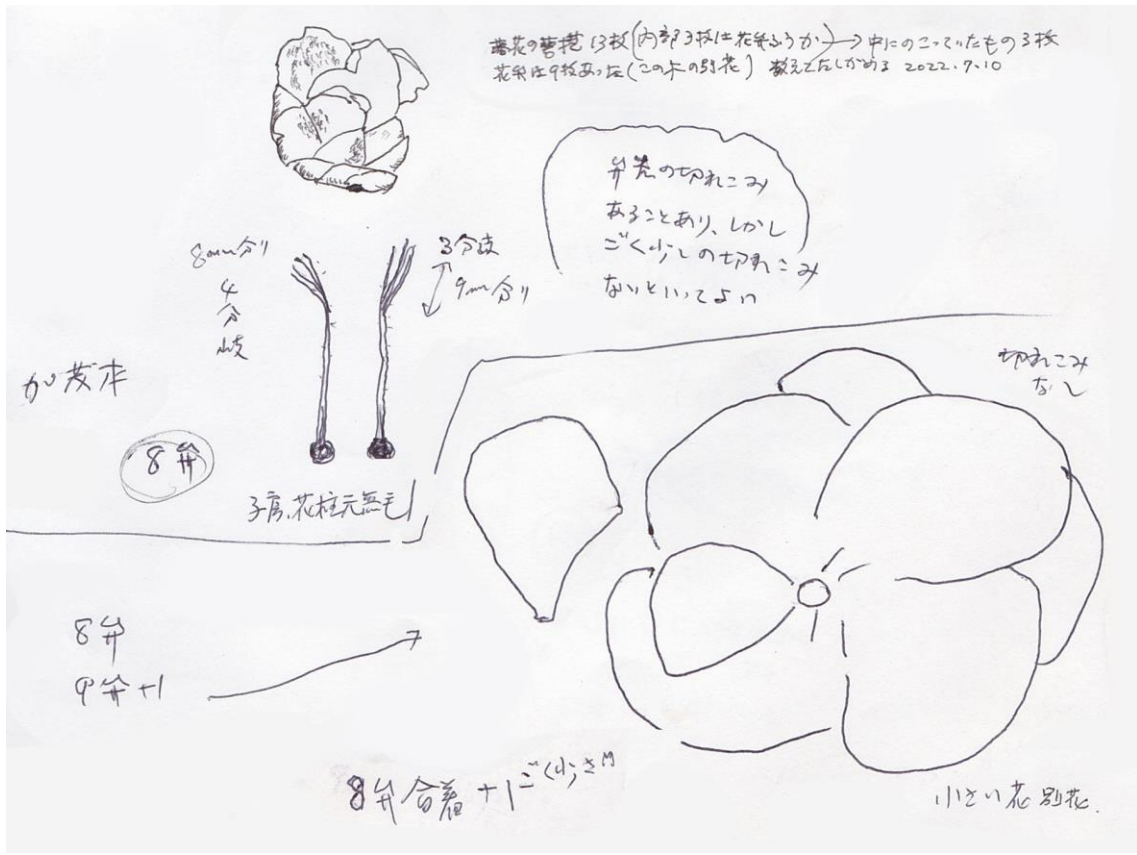 落花の萼捲 13枚(内部3枚は花糸ふうか)→中にのこっていたもの3枚
花糸は9枚あった(この木の別花) 数えてたしかめる 2022.9.10
弁先の切れこみ
あることあり、しかし
ごく少しの切れこみ
ないといってよい
8mm分り
4分岐
3分岐
9mm分り
加茂本
8弁
子房、花柱元無毛
切れこみ
なし
8弁
9弁+1
8弁合着+1ごく小さい
小さい花 別花.